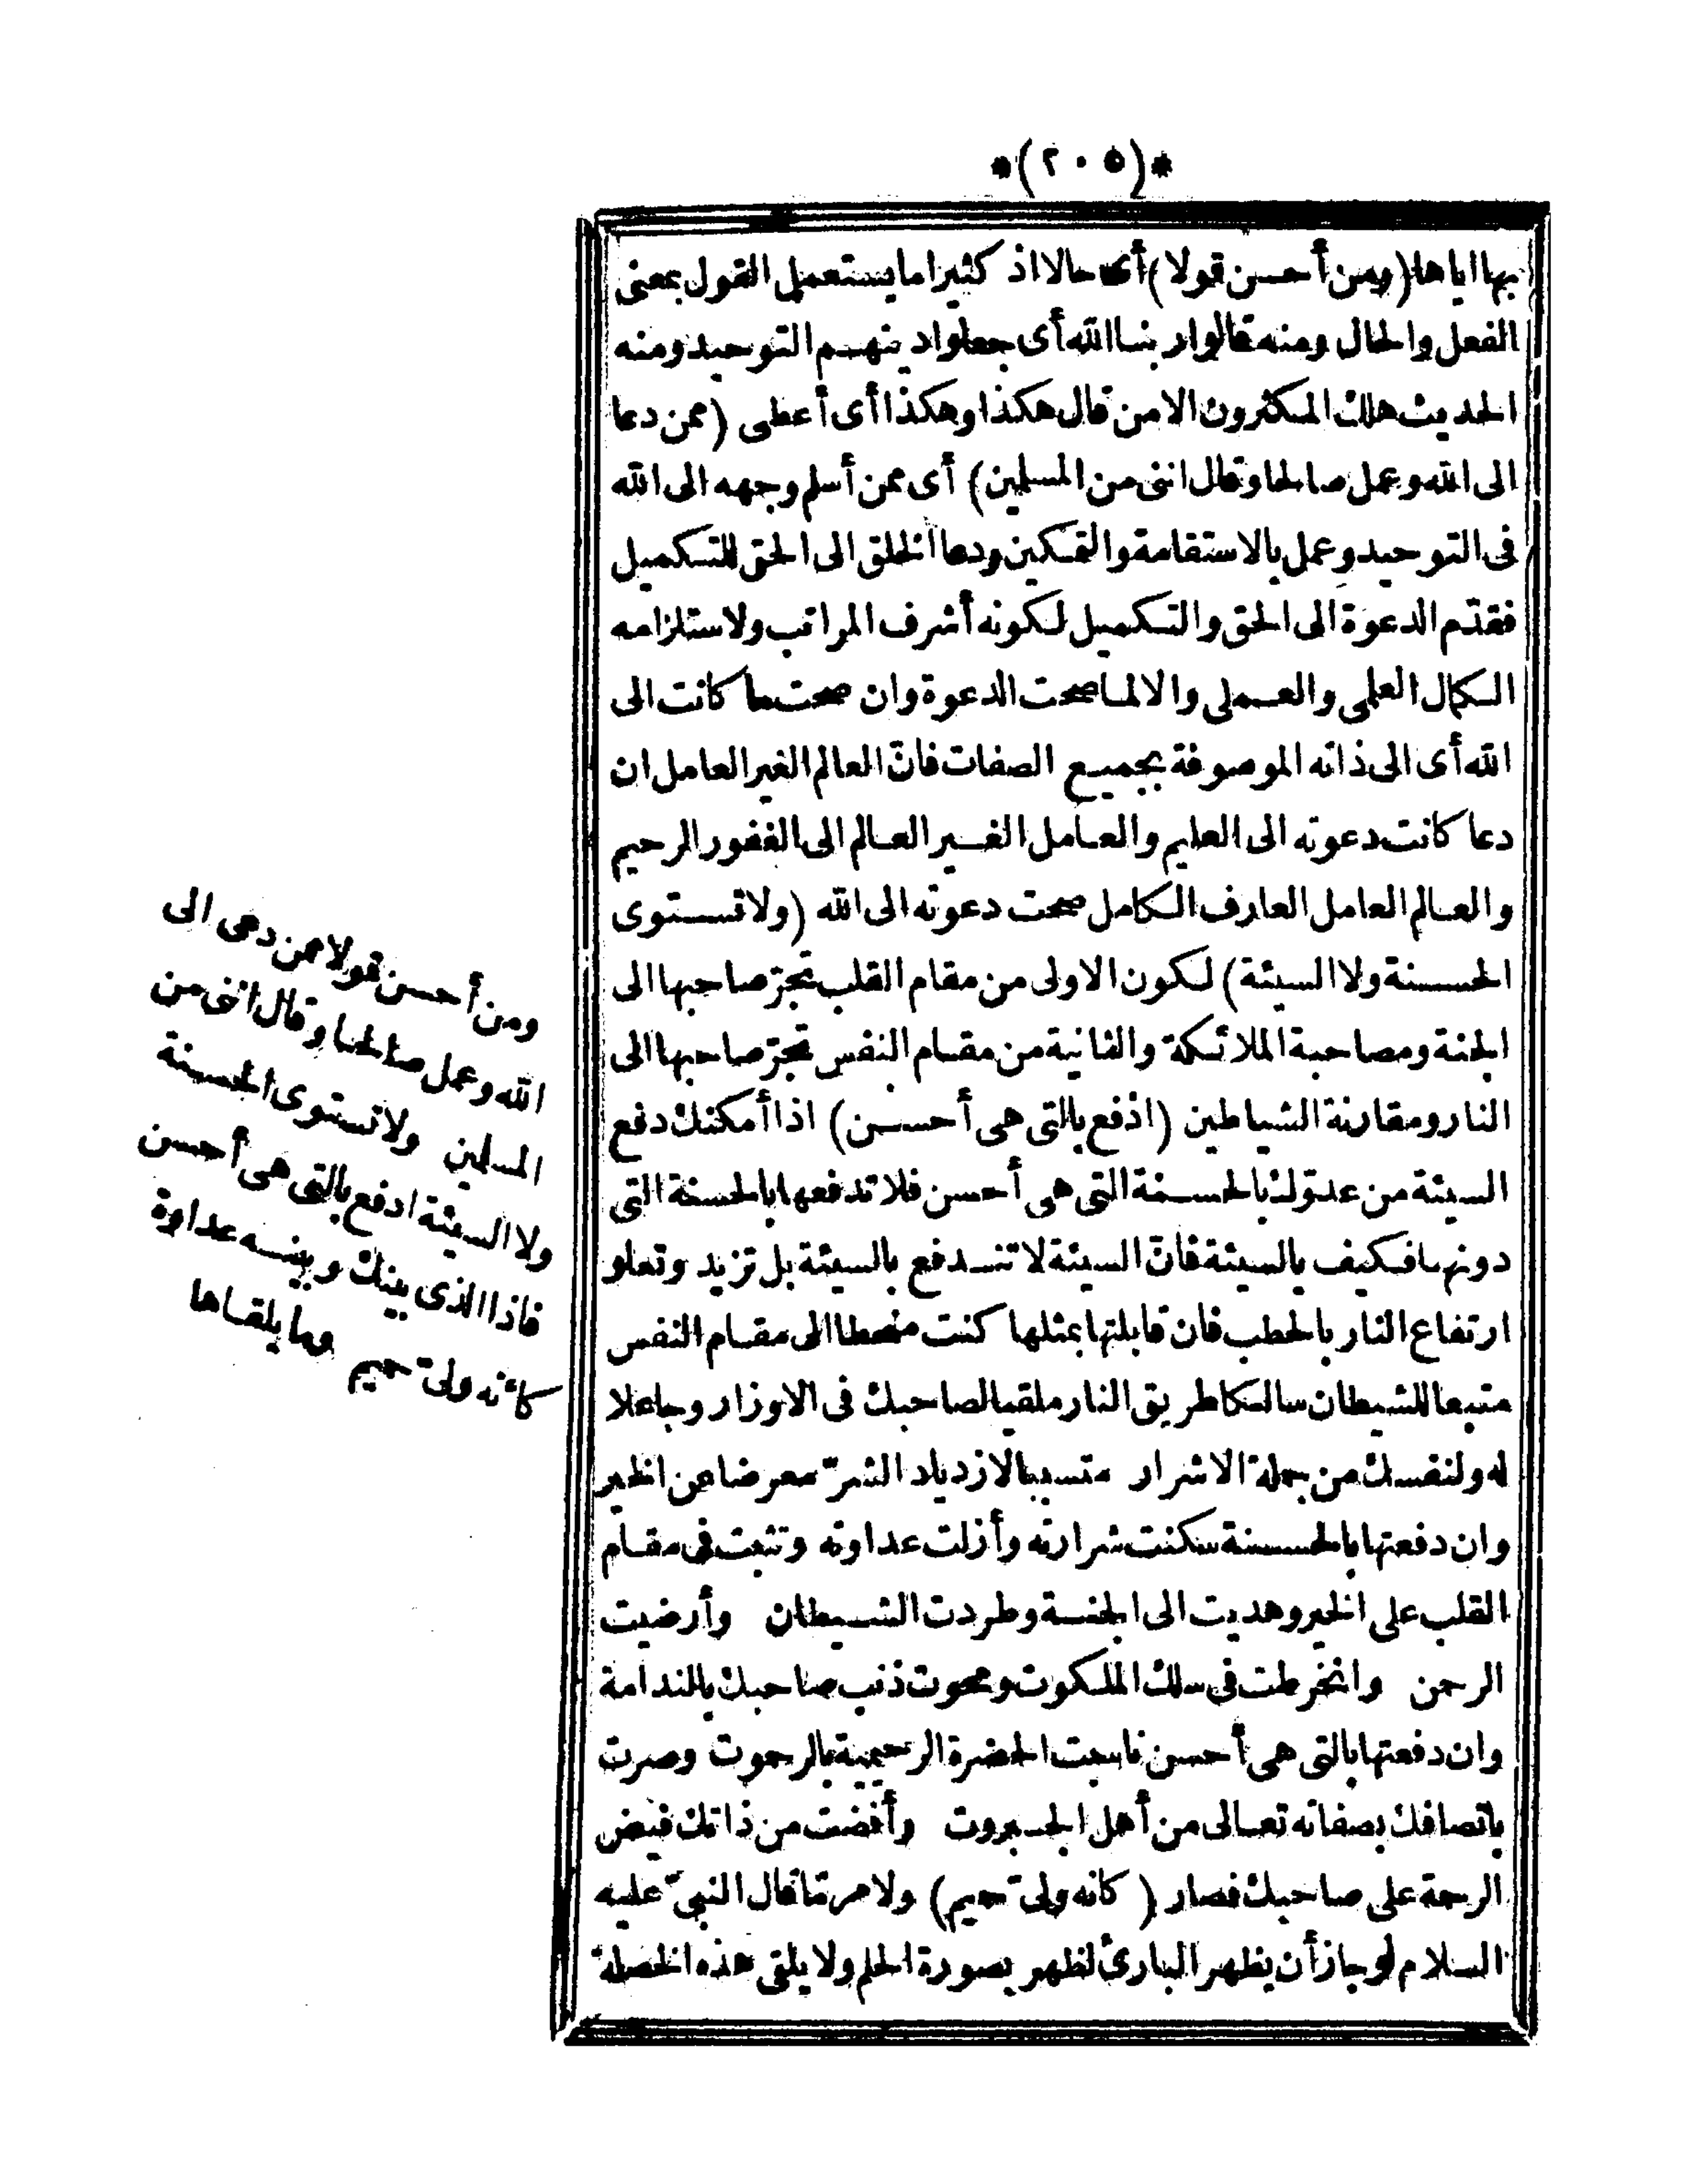 *(٢٠٥)*
بها اياها (ومن أحسن قولا) أى حالا اذ كثيرا ما يستعمل القول بمعنى
الفعل والحال ومنه قالوا ربنا الله أى جعلوا دينهم التوحيد ومنه
الحديث هلك المكثرون الا من قال هكذا وهكذا أى أعطى (ممن دعا
الى الله وعمل صالحا وقال اننى من المسلمين) أى ممن أسلم وجهه الى الله
فى التوحيد وعمل بالاستقامة والتمكين ودعا الخلق الى الحق للتكميل
فقدّم الدعوة الى الحق والتكميل لكونه أشرف المراتب ولاستلزامه
الكمال العلمى والعملى والا لما صحت الدعوة وان صحت ما كانت الى
الله أى الى ذاته الموصوفة بجميع الصفات فانّ العالم الغير العامل ان
دعا كانت دعوته الى العليم والعامل الغير العالم الى الغفور الرحيم
والعالم العامل العارف الكامل صحت دعوته الى الله (ولا تستوى
الحسنة ولا السيئة) لكون الاولى من مقام القلب تجرّ صاحبها الى
الجنة ومصاحبة الملائكة والثانية من مقام النفس تجرّ صاحبها الى
النار ومقارنة الشياطين (ادفع بالتى هى أحسن) اذا أمكنك دفع
السيئة من عدوّك بالحسنة التى هى أحسن فلا تدفعها بالحسنة التى
دونها فكيف بالسيئة فانّ السيئة لا تندفع بالسيئة بل تزيد وتعلو
ارتفاع النار بالحطب فان قابلتها بمثلها كنت منحطا الى مقام النفس
متبعا للشيطان سالكا طريق النار ملقيا لصاحبك فى الاوزار وجاعلا
له ولنفسك من جملة الاشرار متسببا لازدياد الشرّ معرضا عن الخير
وان دفعتها بالحسنة سكنت شرارته وأزلت عداوته وتثبت فى مقام
القلب على الخير وهديت الى الجنة وطردت الشيطان وأرضيت
الرحمن وانخرطت فى سلك الملكوت ومحوت ذنب صاحبك بالندامة
وان دفعتها بالتى هى أحسن ناسبت الحضرة الرحيمية بالرحموت وصرت
باتصافك بصفاته تعالى من أهل الجبروت وأفضت من ذاتك فيض
الرحمة على صاحبك فصار (كانه ولىّ حميم) ولامر مّا قال النبىّ عليه
السلام لو جاز أن يظهر البارئ لظهر بصورة الحلم ولا يلقى هذه الخصلة
ومن أحسن قولا ممن دعى الى
الله وعمل صالحا وقال اننى من
المسلمين ولا تستوى الحسنة
ولا السيئة ادفع بالتى هى أحسن
فاذا الذى بينك وبينه عداوة
كانّه ولىّ حميم وما يلقاها